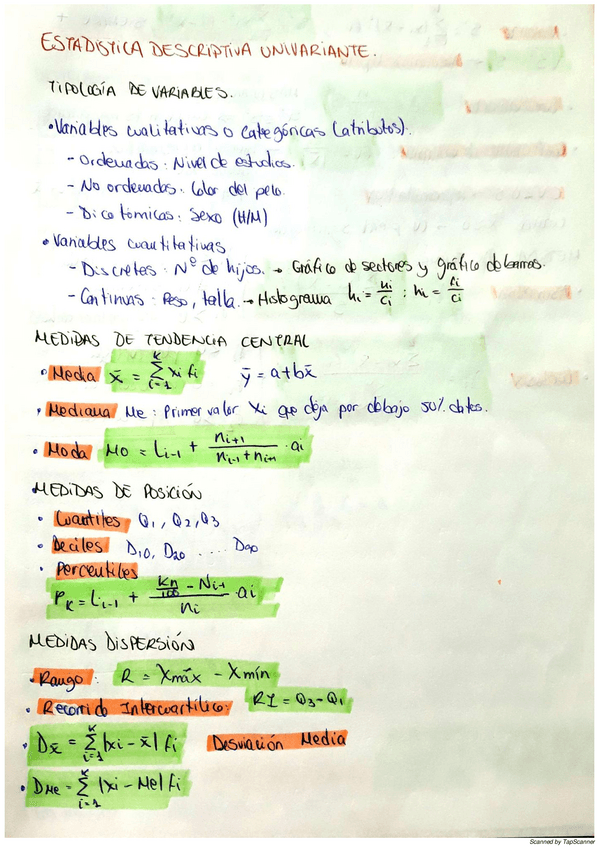 ESTADISTICA DESCRIPTIVA UNIVARIANTE.
TIPOLOGÍA DE VARIABLES.
• Variables cualitativas o categóricas (atributos).
- Ordenadas: Nivel de estudios.
- No ordenadas: Color del pelo.
- Dicotómicas: Sexo (H/M)
• Variables cuantitativas
- Discretas: Nº de hijos. → Gráfico de sectores y gráfico de barras.
- Continuas: Peso, talla. → Histograma hi = ni/ci ; hi = fi/ci
MEDIDAS DE TENDENCIA CENTRAL
• Media x̄ = Σ(i=1, K) xi fi ȳ = a+bx̄
• Mediana Me: Primer valor xi que deja por debajo 50% datos.
• Moda MO = Li-1 + (ni+1)/(ni-1 + ni+1) · ai
MEDIDAS DE POSICIÓN
• Cuartiles Q1, Q2, Q3
• Deciles D10, D20 .... D90
• Percentiles
PK = Li-1 + (Kn/100 - Ni-1)/ni · ai
MEDIDAS DISPERSIÓN
• Rango: R = Xmáx - Xmín
• Recorrido Intercuartílico: RI = Q3-Q1
• Dx̄ = Σ(i=1, K) |xi - x̄| fi Desviación Media
• DMe = Σ(i=1, K) |xi - Me| fi
Scanned by TapScanner